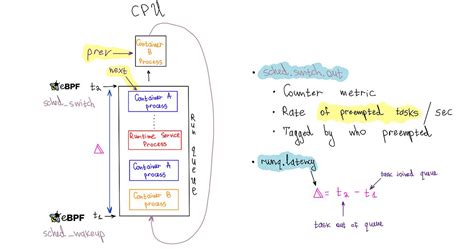 CPU
Container B
process
prev
next
eBPF t2
sched_switch
Container A
process
Runtime Service
Process
Container A
process
Container B
process
Run queue
Δ
eBPF t1
sched_wakeup
• sched_switch_out
• Counter metric
• Rate of preempted tasks / sec
• Tagged by who preempted
• runq.latency
task joined queue
Δ = t2 - t1
task out of queue